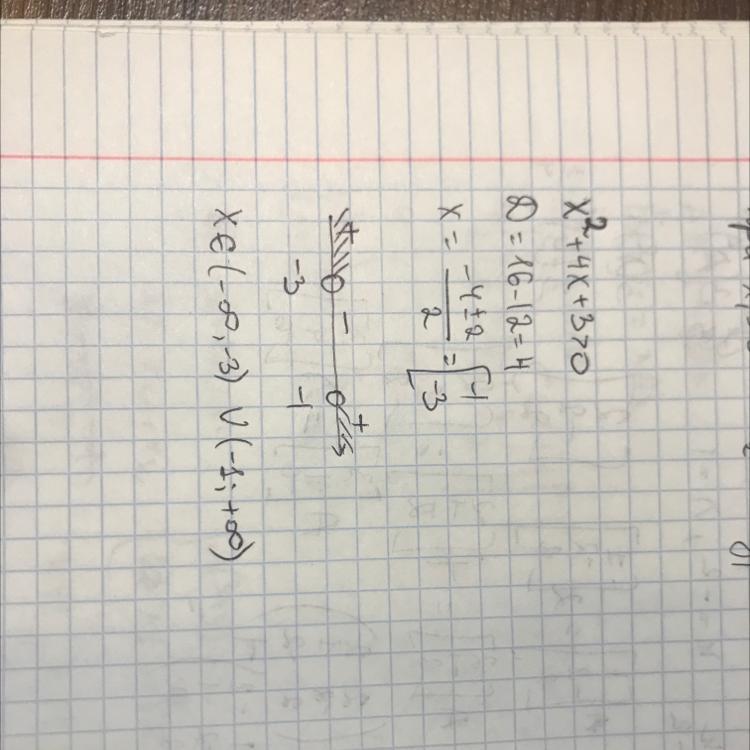 x²+4x+3>0
D=16-12=4
x = (-4±2)/2 = [-1
-3
+ - +
-3 -1
x∈(-∞,-3) ∪ (-1;+∞)